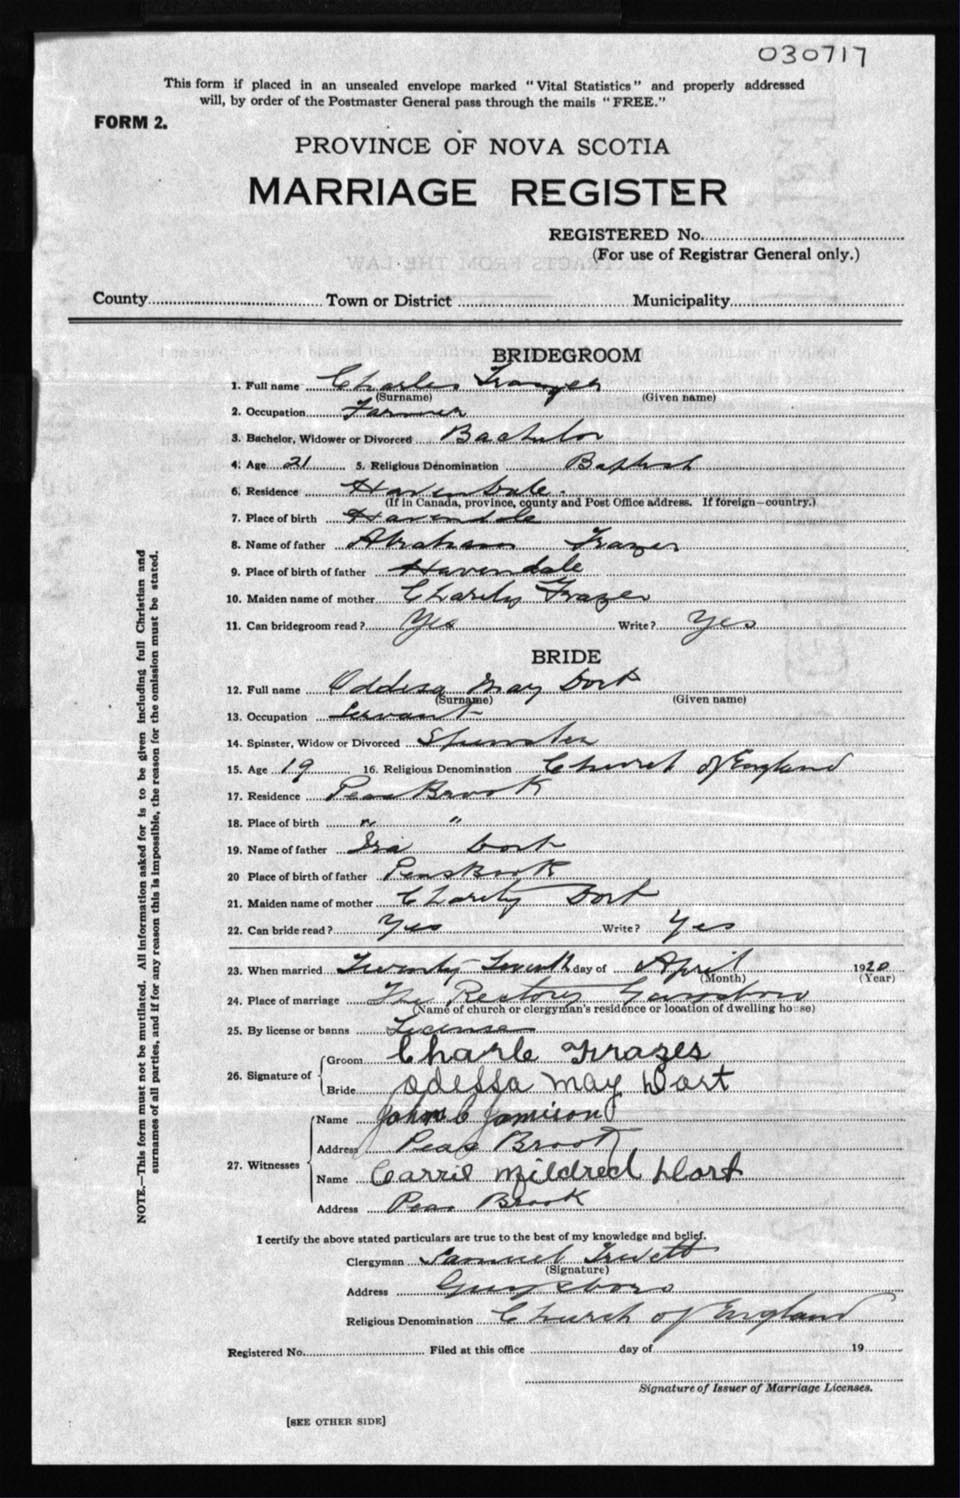 030717
This form if placed in an unsealed envelope marked "Vital Statistics" and properly addressed
will, by order of the Postmaster General pass through the mails "FREE."
FORM 2.
PROVINCE OF NOVA SCOTIA
MARRIAGE REGISTER
REGISTERED No.
(For use of Registrar General only.)
County Town or District Municipality
BRIDEGROOM
1. Full name Charles Frazer
(Surname) (Given name)
2. Occupation Farmer
3. Bachelor, Widower or Divorced Bachelor
4. Age 21 5. Religious Denomination Baptist
6. Residence Havendale
(If in Canada, province, county and Post Office address. If foreign—country.)
7. Place of birth Havendale
8. Name of father Abraham Frazer
9. Place of birth of father Havendale
10. Maiden name of mother Charity Frazer
11. Can bridegroom read? Yes Write? Yes
BRIDE
12. Full name Oddesa May Dort
(Surname) (Given name)
13. Occupation Servant
14. Spinster, Widow or Divorced Spinster
15. Age 19 16. Religious Denomination Church of England
17. Residence Peas Brook
18. Place of birth " "
19. Name of father Ira Dort
20 Place of birth of father Peas Brook
21. Maiden name of mother Charity Dort
22. Can bride read? Yes Write? Yes
23. When married Twenty day of April 1920
(Month) (Year)
24. Place of marriage The Rectory Guysboro
(Name of church or clergyman's residence or location of dwelling house)
25. By license or banns License
26. Signature of Groom Charle Frazer
Bride Odessa May Dort
27. Witnesses Name John C Jamison
Address Peas Brook
Name Carrie Mildred Dort
Address Peas Brook
I certify the above stated particulars are true to the best of my knowledge and belief.
Clergyman Samuel Trivett
(Signature)
Address Guysboro
Religious Denomination Church of England
Registered No. Filed at this office day of 19
Signature of Issuer of Marriage Licenses.
[SEE OTHER SIDE]
NOTE.—This form must not be mutilated. All information asked for is to be given including full Christian and
surnames of all parties, and if for any reason this is impossible, the reason for the omission must be stated.